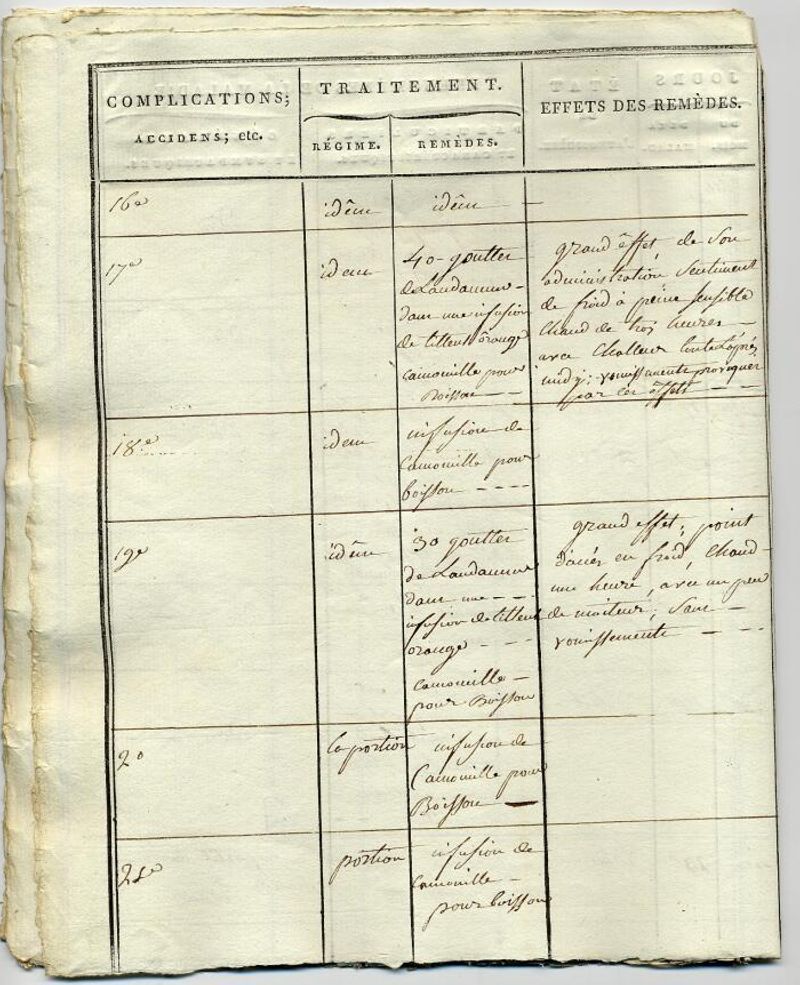 COMPLICATIONS;
ACCIDENS; etc.
TRAITEMENT.
RÉGIME.
REMÈDES.
EFFETS DES REMÈDES.
16e
idêm
idêm —
17e
idem
40 - goutter
de Laudanum -
dans une infusion
de tilleul orange
camomille pour
Boisson - -
grand effet, de son
administration sentiment
de froid à peine sensible
chaud de trois heures -
avec chaleur toute l'après
midy; vomissements provoquer
par ces êffets - -
18e
idem
infusion de
Camomille pour
boisson - - - -
19e
idêm
30 goutter
de Laudanum
dans une - - -
infusion de tilleul
orange - - -
camomille -
pour Boisson
grand effet; point
d'accés en froid, chaud -
une heure, avec un peu
de moiteur; sans -
vomissements - - -
20
la portion
infusion de
Camomille pour
Boisson —
21e
portion
infusion de
camomille -
pour boisson